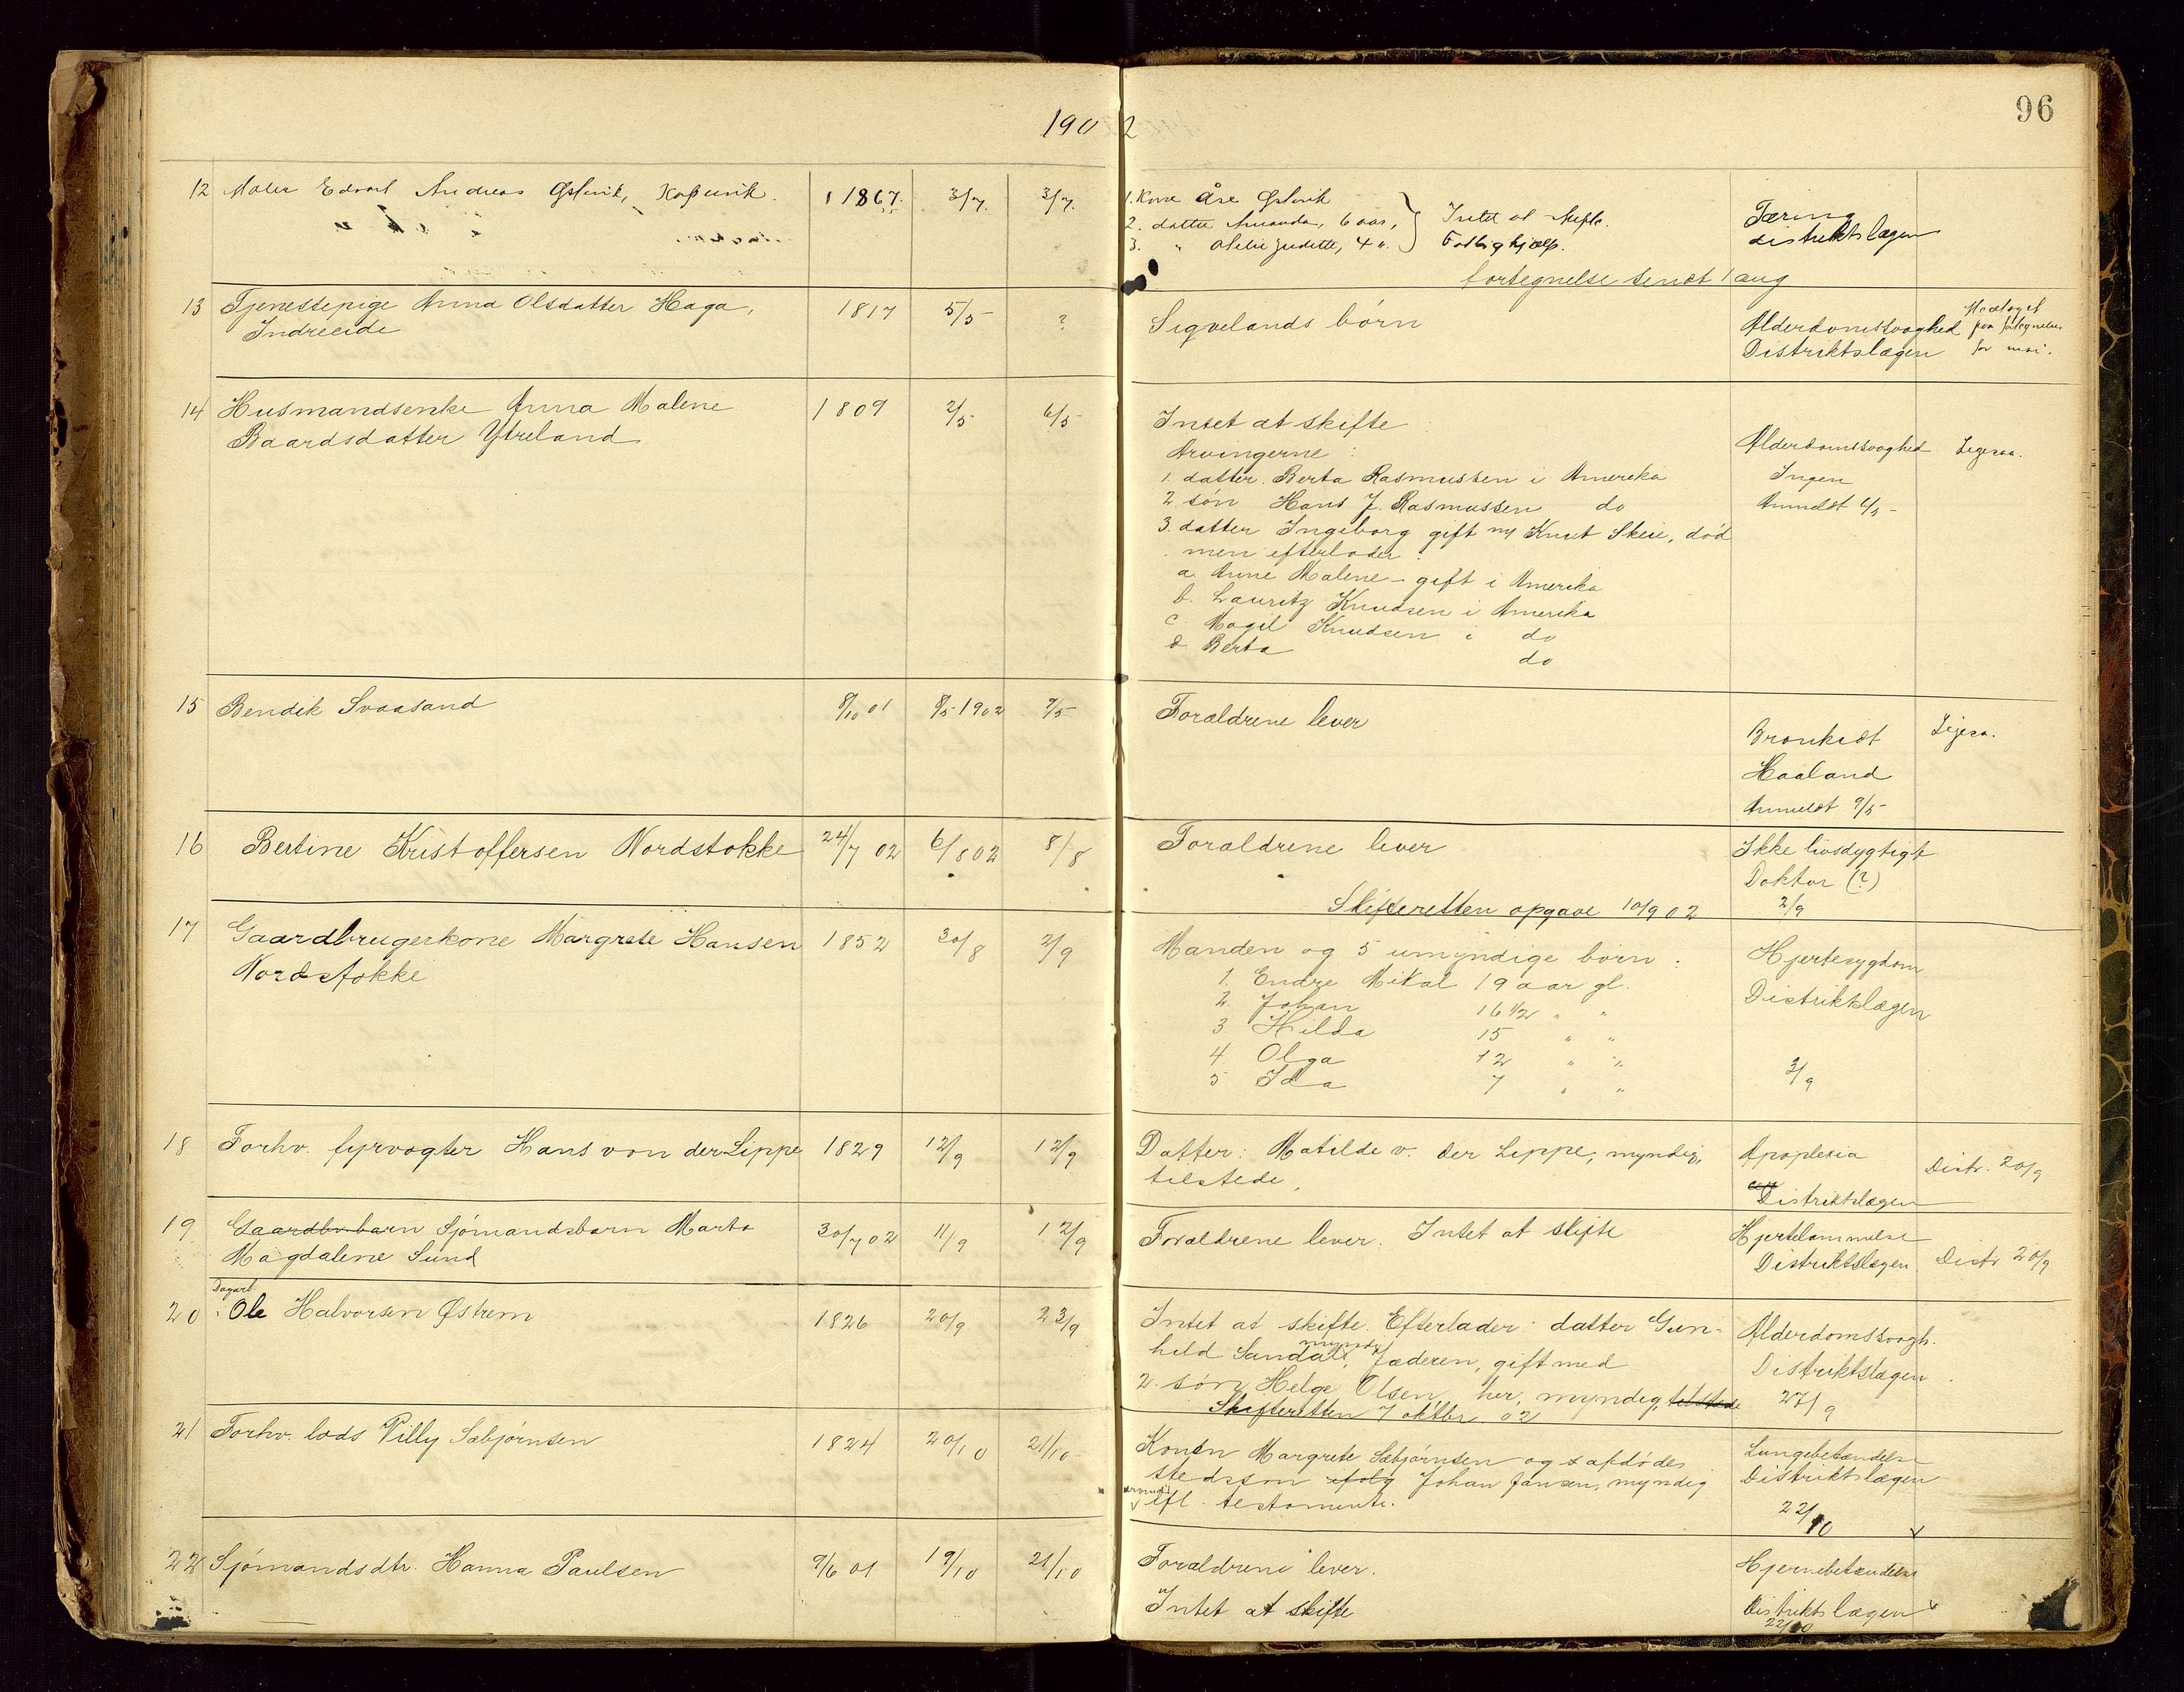 1902
96
12 Maler Edvart Andreas Østervik, Kopervik. 1867. 3/7. 3/7.
1. Kone Åse Østervik
2. datter Amanda, 6 aar, Intet at skifte.
3. " Judette, 4 ". Fattighjælp.
fortegnelse sendt 1 aug
Tæring
distriktslægen
13 Tjenestepige Anna Olsdatter Haga, 1817 5/5 ?
Indreeide
Sigvelands børn
Alderdomssvaghed
Distriktslægen
Medtaget
paa fortegnelsen
for mai.
14 Husmandsenke Anna Malene 1809 2/5 6/5
Baardsdatter Ytreland
Intet at skifte
Arvingerne:
1. datter. Berta Rasmussen i Amerika
2 søn Hans J. Rasmussen do
3. datter Ingeborg gift m/ Knut Skeie, død
men efterlader:
a Anne Malene - gift i Amerika
b. Lauritz Knudsen i Amerika
c Magil Knudsen i do
d Berta do
Alderdomssvaghed
Ingen
Anmeldt 6/5
Ligesaa.
15 Bendik Svaasand 8/10 01 8/5 1902 9/5
Forældrene lever
Bronkedt
Haaland
Anmeldt 9/5
Ligesa.
16 Bertine Kristoffersen Nordstokke 24/7 02 6/8 02 8/8
Forældrene lever
Ikke livsdygtigt
Doktor (?)
2/9
Skifteretten opgave 10/9 02
17 Gaardbrugerkone Margrete Hansen 1852 30/8 2/9
Nordstokke
Manden og 5 umyndige børn:
1. Endre Mikal 19 aar gl.
2. Johan 16 1/2 " "
3 Hilda 15 " "
4. Olga 12 " "
5 Ida 7 " "
Hjertesygdom
Distriktslægen
3/9
18 Forhv. fyrvogter Hans von der Lippe 1829 12/9 12/9
Datter: Matilde v. der Lippe, myndig,
tilstede.
Apoplexia
Distriktslægen
Distr. 20/9
19 Gaardbr barn Sjømandsbarn Marta 30/7 02 11/9 12/9
Magdalene Sund
Forældrene lever. Intet at skifte
Hjertelammelse
Distriktslægen
Distr 20/9
Dagarb
20 Ole Halvorsen Østrem 1826 20/9 23/9
Intet at skifte. Efterlader: datter Gun-
hild Sandal, myndig, Jæderen, gift med
2. søn Helge Olsen, her, myndig, tilstede
Skifteretten 7 oktbr. 02
Alderdomssvagh.
Distriktslægen
27/9
21 Forhv. lods Villy Sæbjørnsen 1824 20/10 21/10
Konen Margrete Sæbjørnsen og afdødes
stedsson ifølg Johan Jansen, myndig
arving efl. testamente.
Lungebetændelse
Distriktslægen
22/10
22 Sjømandsdtr. Hanna Paulsen 9/6 01 19/10 21/10
Forældrene lever.
Intet at skifte
Hjernebetændelse
Distriktslægen
22/10